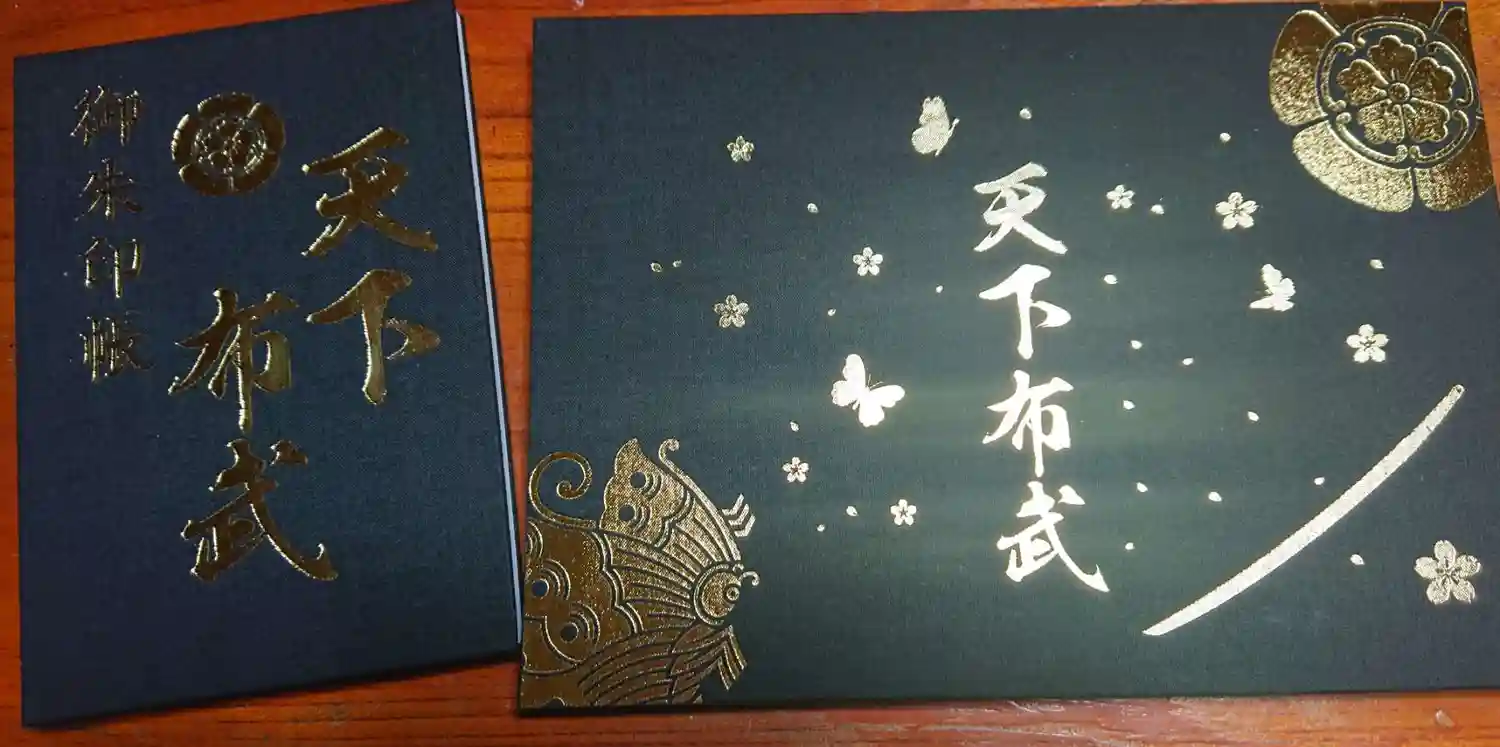 天下
布武
御朱印帳
天下布武